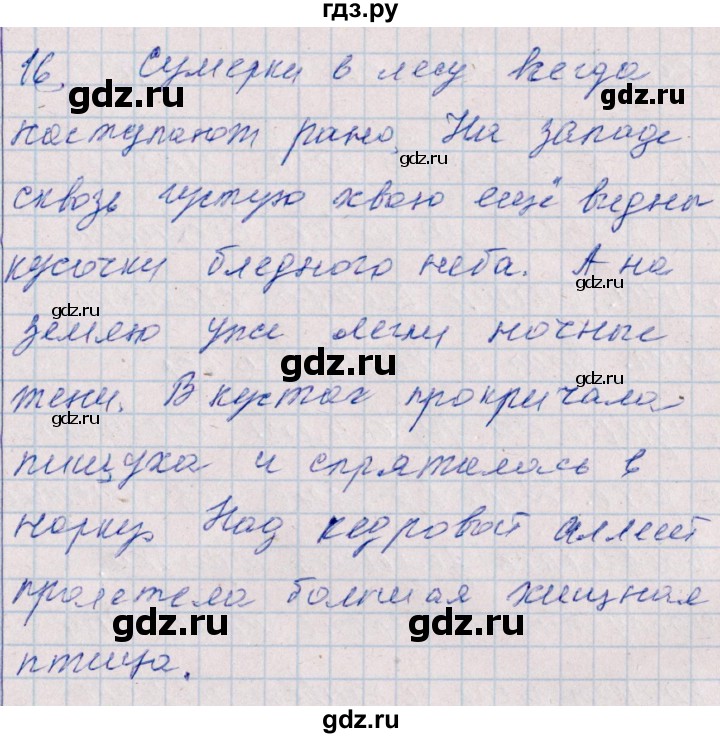 гдз.ру
16. Сумерки в лесу всегда
gdz.ru
gdz.ru
наступают рано. На западе
gdz.ru
сквозь густую хвою ещё видны
кусочки бледного неба. А на
gdz.ru
gdz.ru
землю уже легли ночные
gdz.ru
gdz.ru
тени. В кустах прокричала
gdz.ru
пищуха и спряталась в
gdz.ru
норку. Над кедровой аллеей
gdz.ru
пролетела большая хищная
gdz.ru
gdz.ru
птица.
gdz.ru